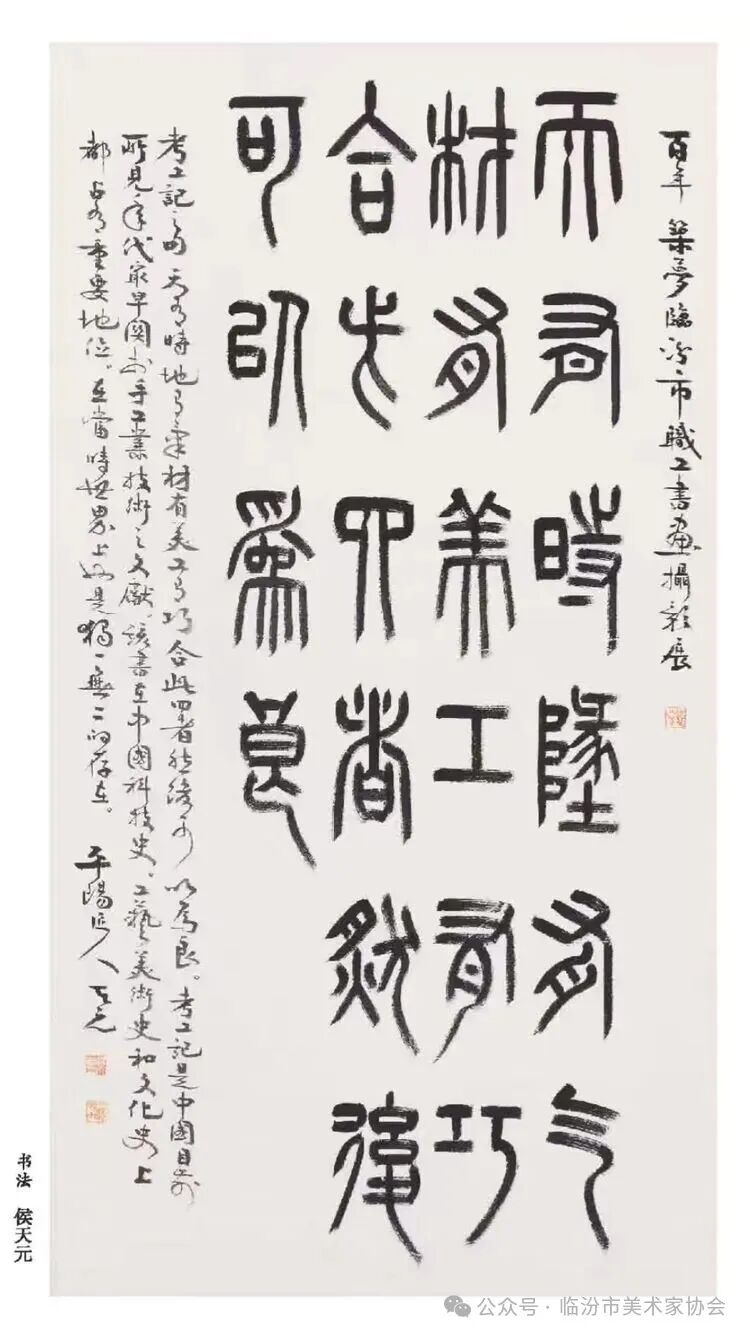 百年築夢臨汾市職工書畫攝影展
天有時地有气
材有美工有巧
合此四者然後
可以為良
考工記云曰天有時地有氣材有美工有巧合此四者然後可以為良。考工記是中國目前
所見年代最早關於手工業技術之文獻,該書在中國科技史、工藝美術史和文化史上
都占有重要地位。在當時世界上也是獨一無二的存在。平陽匠人天元
书法 侯天元
公众号·临汾市美术家协会